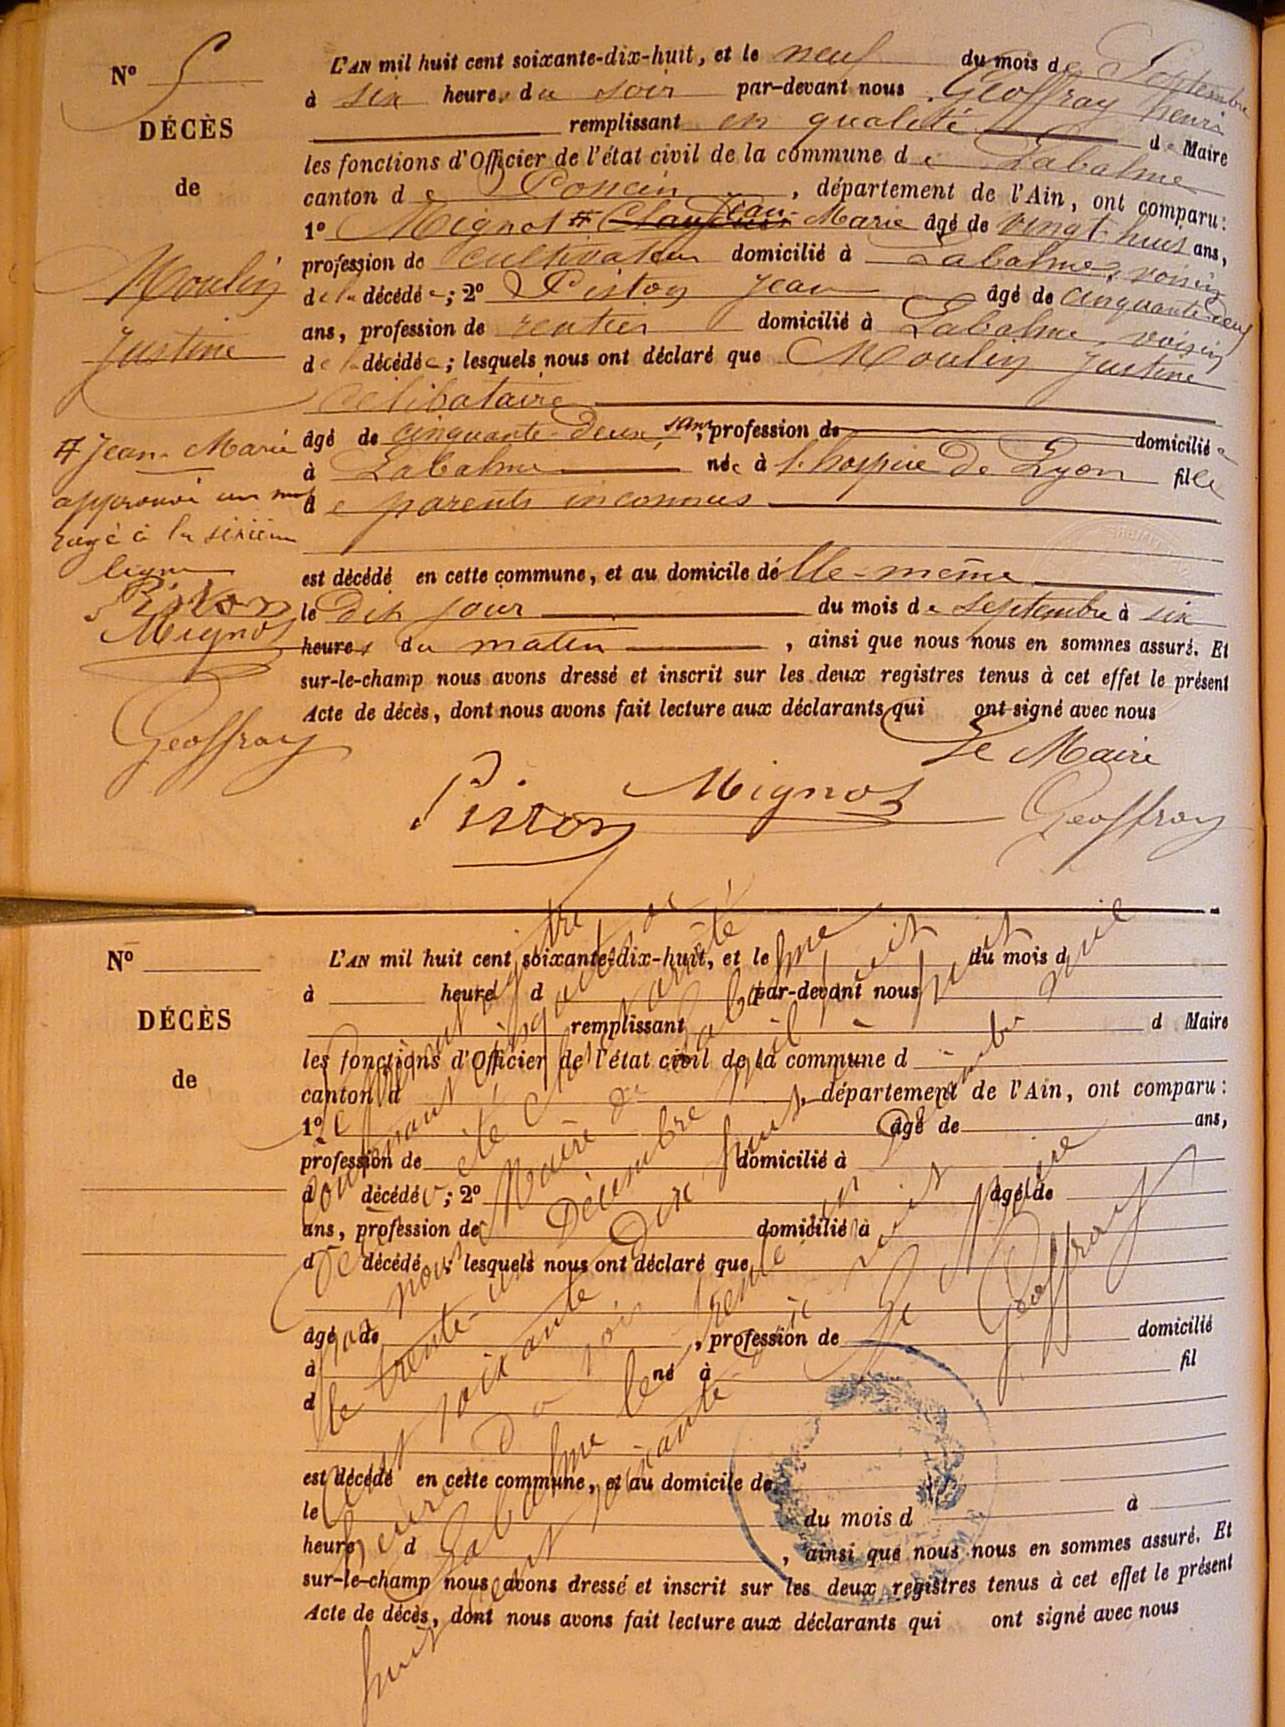 N° 5
DÉCÈS
de
Moulin
Justine
# Jean-Marie
approuvé un mot
rayé à la sixième
ligne
Piston
Mignot
Geoffray
L'AN mil huit cent soixante-dix-huit, et le neuf du mois de Septembre
à six heures du soir par-devant nous Geoffray henri
remplissant en qualité de Maire
les fonctions d'Officier de l'état civil de la commune de Labalme
canton de Poncin, département de l'Ain, ont comparu:
1° Mignot # Jean Marie âgé de vingt-huit ans,
profession de cultivateur domicilié à Labalme, voisin
de la décédée; 2° Piston Jean âgé de cinquante-neuf
ans, profession de rentier domicilié à Labalme, voisin
de la décédée; lesquels nous ont déclaré que Moulin Justine
célibataire
âgé de cinquante-deux ans, profession de domiciliée
à Labalme née à l'hospice de Lyon fille
de parents inconnus
est décédé en cette commune, et au domicile d'elle-même
le dit jour du mois de septembre à six
heures du matin, ainsi que nous nous en sommes assuré. Et
sur-le-champ nous avons dressé et inscrit sur les deux registres tenus à cet effet le présent
Acte de décès, dont nous avons fait lecture aux déclarants qui ont signé avec nous
Le Maire
Piston Mignot Geoffray
N°
DÉCÈS
de
L'AN mil huit cent soixante-dix-huit, et le du mois d
à heure d par-devant nous
remplissant d Maire
les fonctions d'Officier de l'état civil de la commune d
canton d , département de l'Ain, ont comparu:
1° âgé de ans,
profession de domicilié à
d décédé ; 2° âgé de
ans, profession de domicilié à
d décédé ; lesquels nous ont déclaré que
âgé de , profession de domicilié
à né à fil
d
est décédé en cette commune, et au domicile de
le du mois d à
heure d , ainsi que nous nous en sommes assuré. Et
sur-le-champ nous avons dressé et inscrit sur les deux registres tenus à cet effet le présent
Acte de décès, dont nous avons fait lecture aux déclarants qui ont signé avec nous
Le présent registre
contenant cinq actes de
décès a été clos et arrêté
par nous Maire de Labalme
le trente-un Décembre mil huit
cent soixante Dix huit à huit
heures du soir
Labalme le trente un Décembre mil
huit cent soixante-dix huit
Le Maire
Geoffray